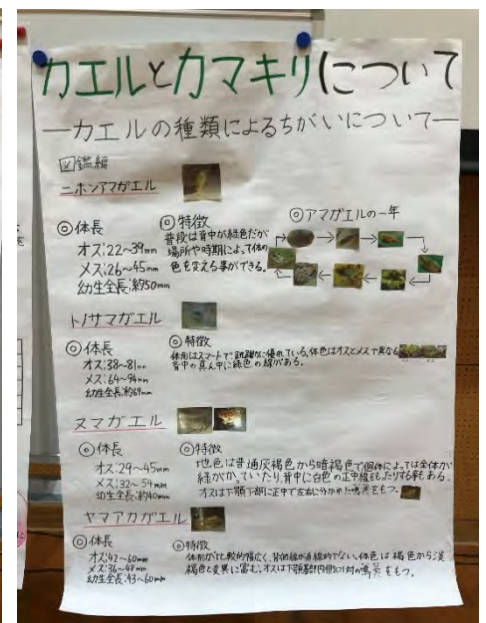 カエルとカマキリについて
―カエルの種類によるちがいについて―
図鑑編
ニホンアマガエル
◎体長
オス:22~39mm
メス:26~45mm
幼生全長:約50mm
◎特徴
普段は背中が緑色だが
場所や時期によって体の
色を変える事ができる。
◎アマガエルの一年
トノサマガエル
◎体長
オス:38~81mm
メス:64~94mm
幼生全長:約69mm
◎特徴
体形はスマートで跳躍に優れている。体色はオスとメスで異なる
背中の真ん中に緑色の線がある。
ヌマガエル
◎体長
オス:29~45mm
メス:32~54mm
幼生全長:約40mm
◎特徴
地色は普通灰褐色から暗褐色で個体によっては全体が
緑がかっていたり、背中に白色の正中線をもったりする事もある。
オスは下顎下部に正中で左右に分かれた鳴嚢をもつ。
ヤマアカガエル
◎体長
オス:42~60mm
メス:36~78mm
幼生全長:43~60mm
◎特徴
体形が比較的幅広く、背側線が直線的でない。体色は褐色から淡
褐色と変異に富む。オスは下顎基部内側に1対の鳴嚢をもつ。